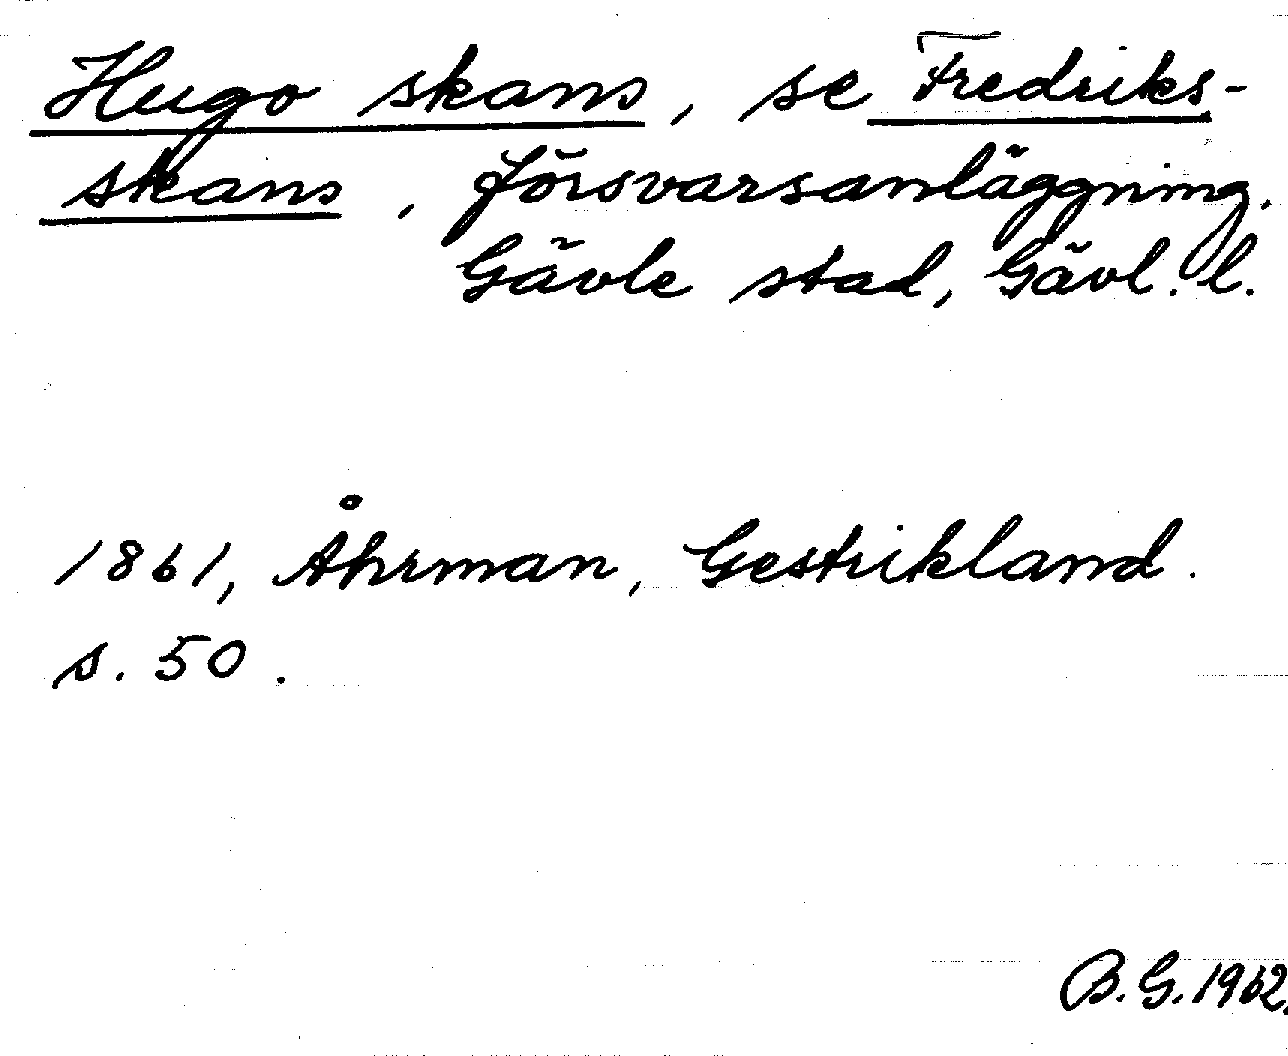 Hugo skans, se Fredriks-
skans, försvarsanläggning.
Gävle stad, Gävl. l.
1861, Åhrman, Gestrikland.
s. 50.
B. G. 1962.